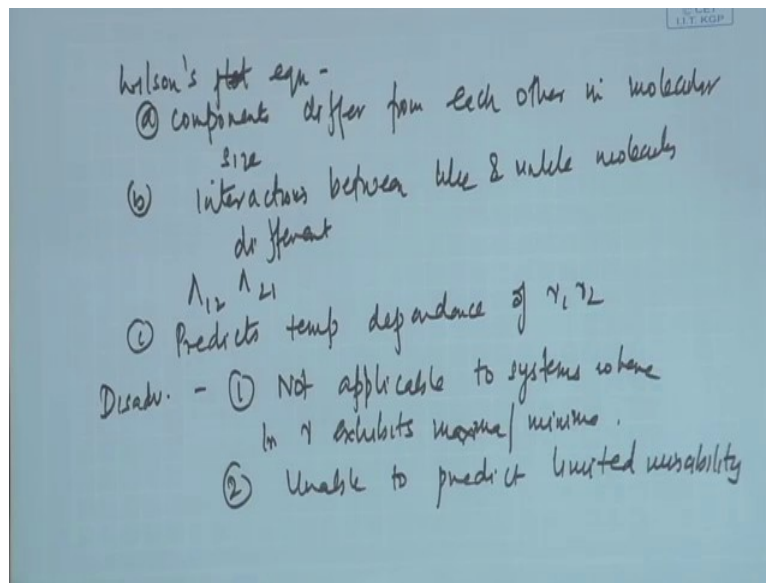 I.I.T. KGP
Wilson's eqn -
(a) components differ from each other in molecular
size
(b) Interactions between like & unlike molecules
different
Λ12 Λ21
(c) Predicts temp dependance of γ1 γ2
Disadv. - (1) Not applicable to systems where
ln γ exhibits maxima/minima.
(2) Unable to predict limited miscibility